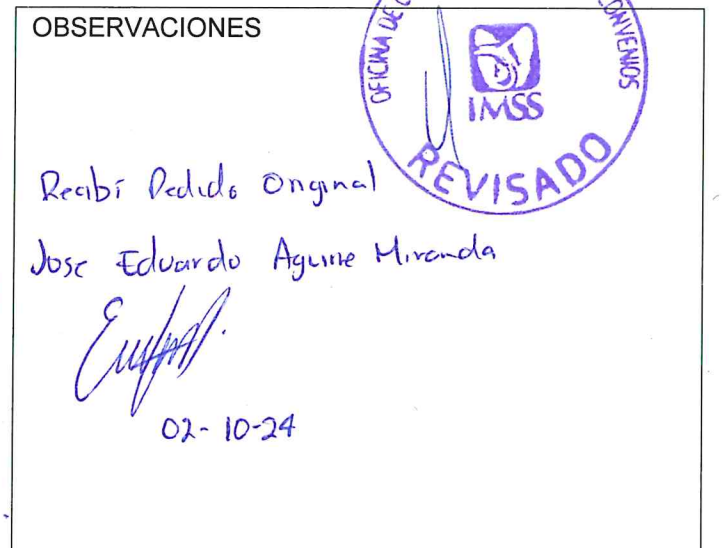 OBSERVACIONES
OFICINA DE
CONVENIOS
IMSS
REVISADO
Recibí Pedido Original
Jose Eduardo Aguirre Miranda
02-10-24